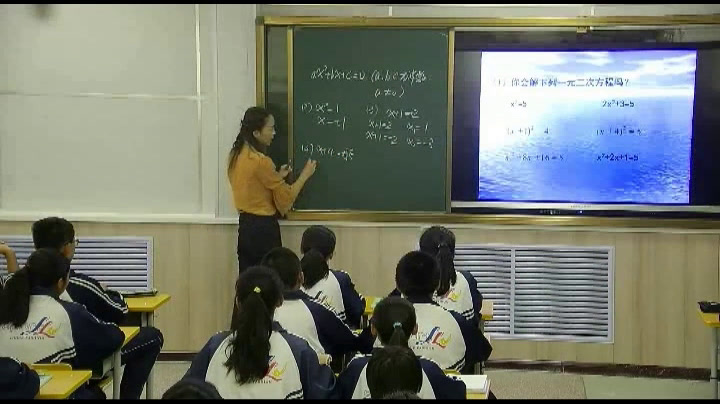 ax²+bx+c=0 (a.b.c为常数
a≠0)
x²=1
x=±1
(3) x+1=±2
x+1=2 x₁=1
x+1=-2 x₂=-3
你会解下列一元二次方程吗?
x²=5 2x²+3=5
(x+1)²=4 (x+4)²=5
x²+8x+16=5 x²+2x+1=5